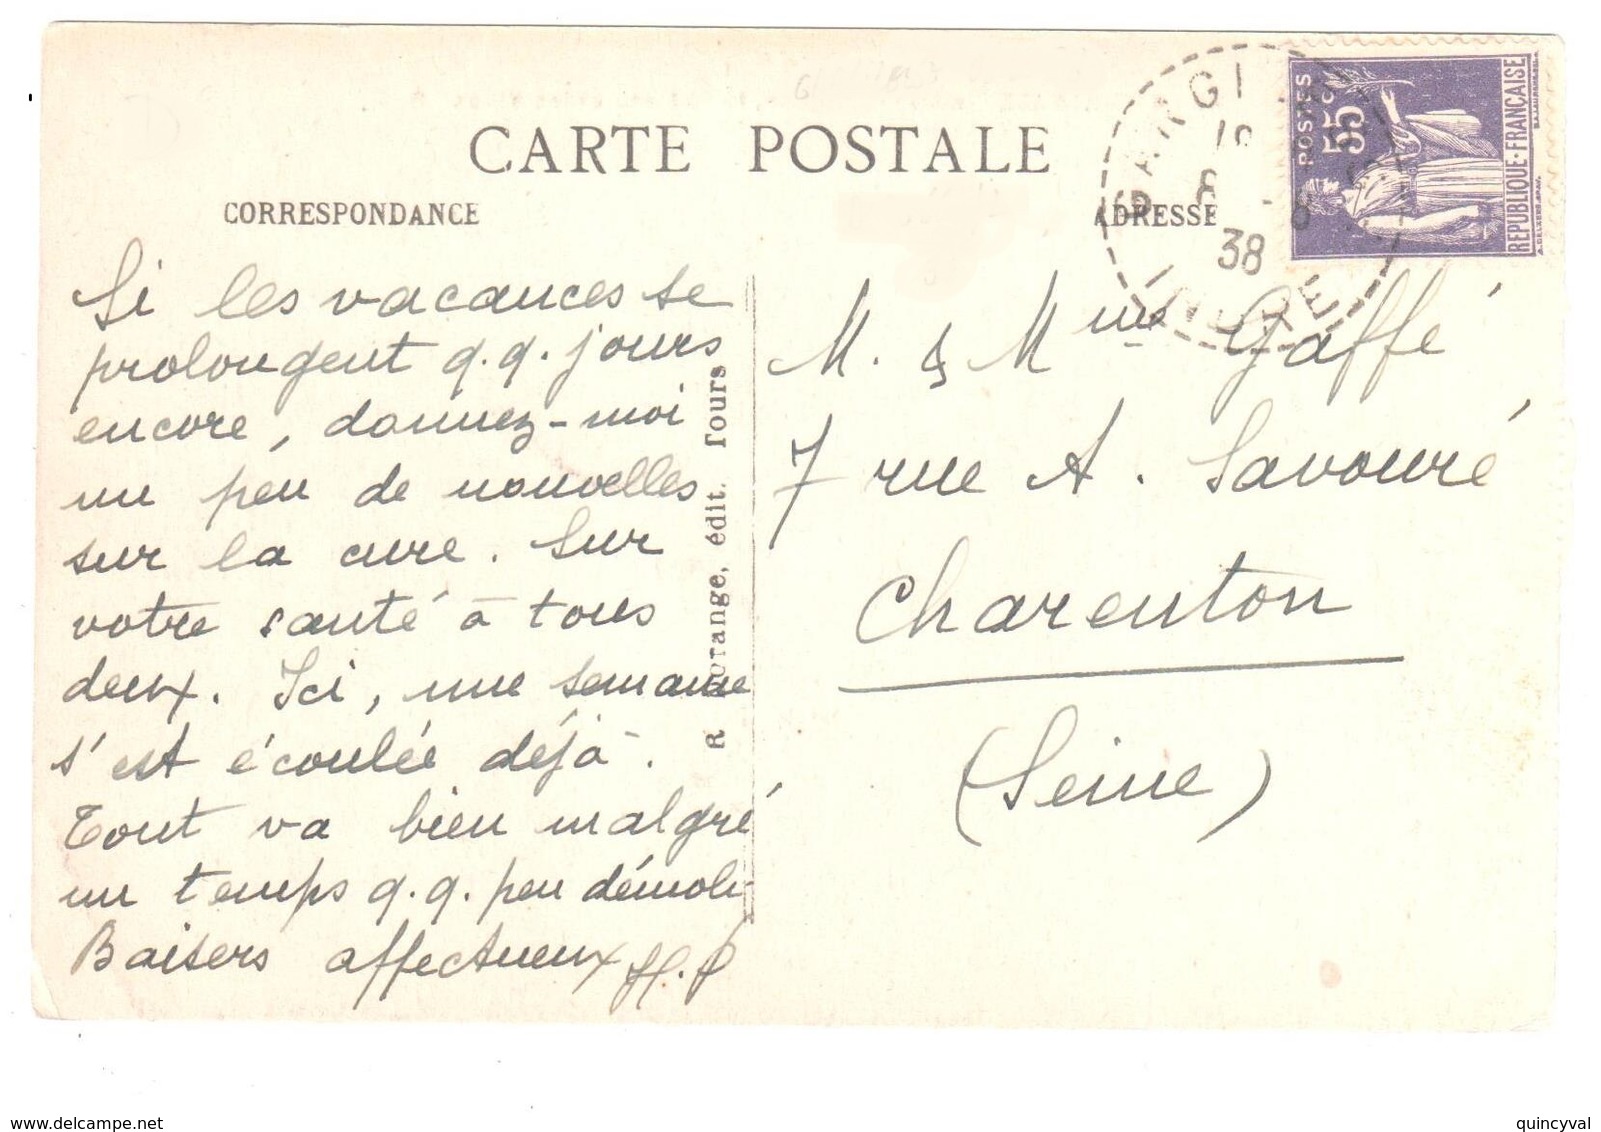 CARTE POSTALE
CORRESPONDANCE
ADRESSE
POSTES
55c
REPUBLIQUE·FRANÇAISE
38
Si les vacances se
prolongent q.q. jours
encore, donnez-moi
un peu de nouvelles
sur la cure. Sur
votre santé à tous
deux. Ici, une semaine
s'est écoulée déjà.
Tout va bien malgré
un temps q.q. peu démoli
Baisers affectueux
édit. Tours
M. & Mme Gaffé
7 rue A. Savouré
Charenton
(Seine)
www.delcampe.net
quincyval